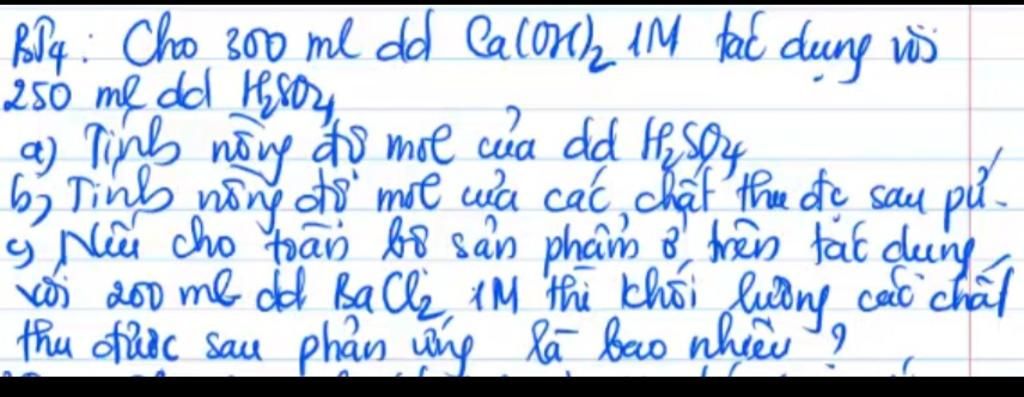 BT4: Cho 300 ml dd Ca(OH)2 1M tác dụng với
250 ml dd H2SO4
a) Tính nồng độ mol của dd H2SO4
b) Tính nồng độ mol của các chất thu đc sau pứ.
c) Nếu cho toàn bộ sản phẩm ở trên tác dụng
với 200 ml dd BaCl2 1M thì khối lượng các chất
thu được sau phản ứng là bao nhiêu?